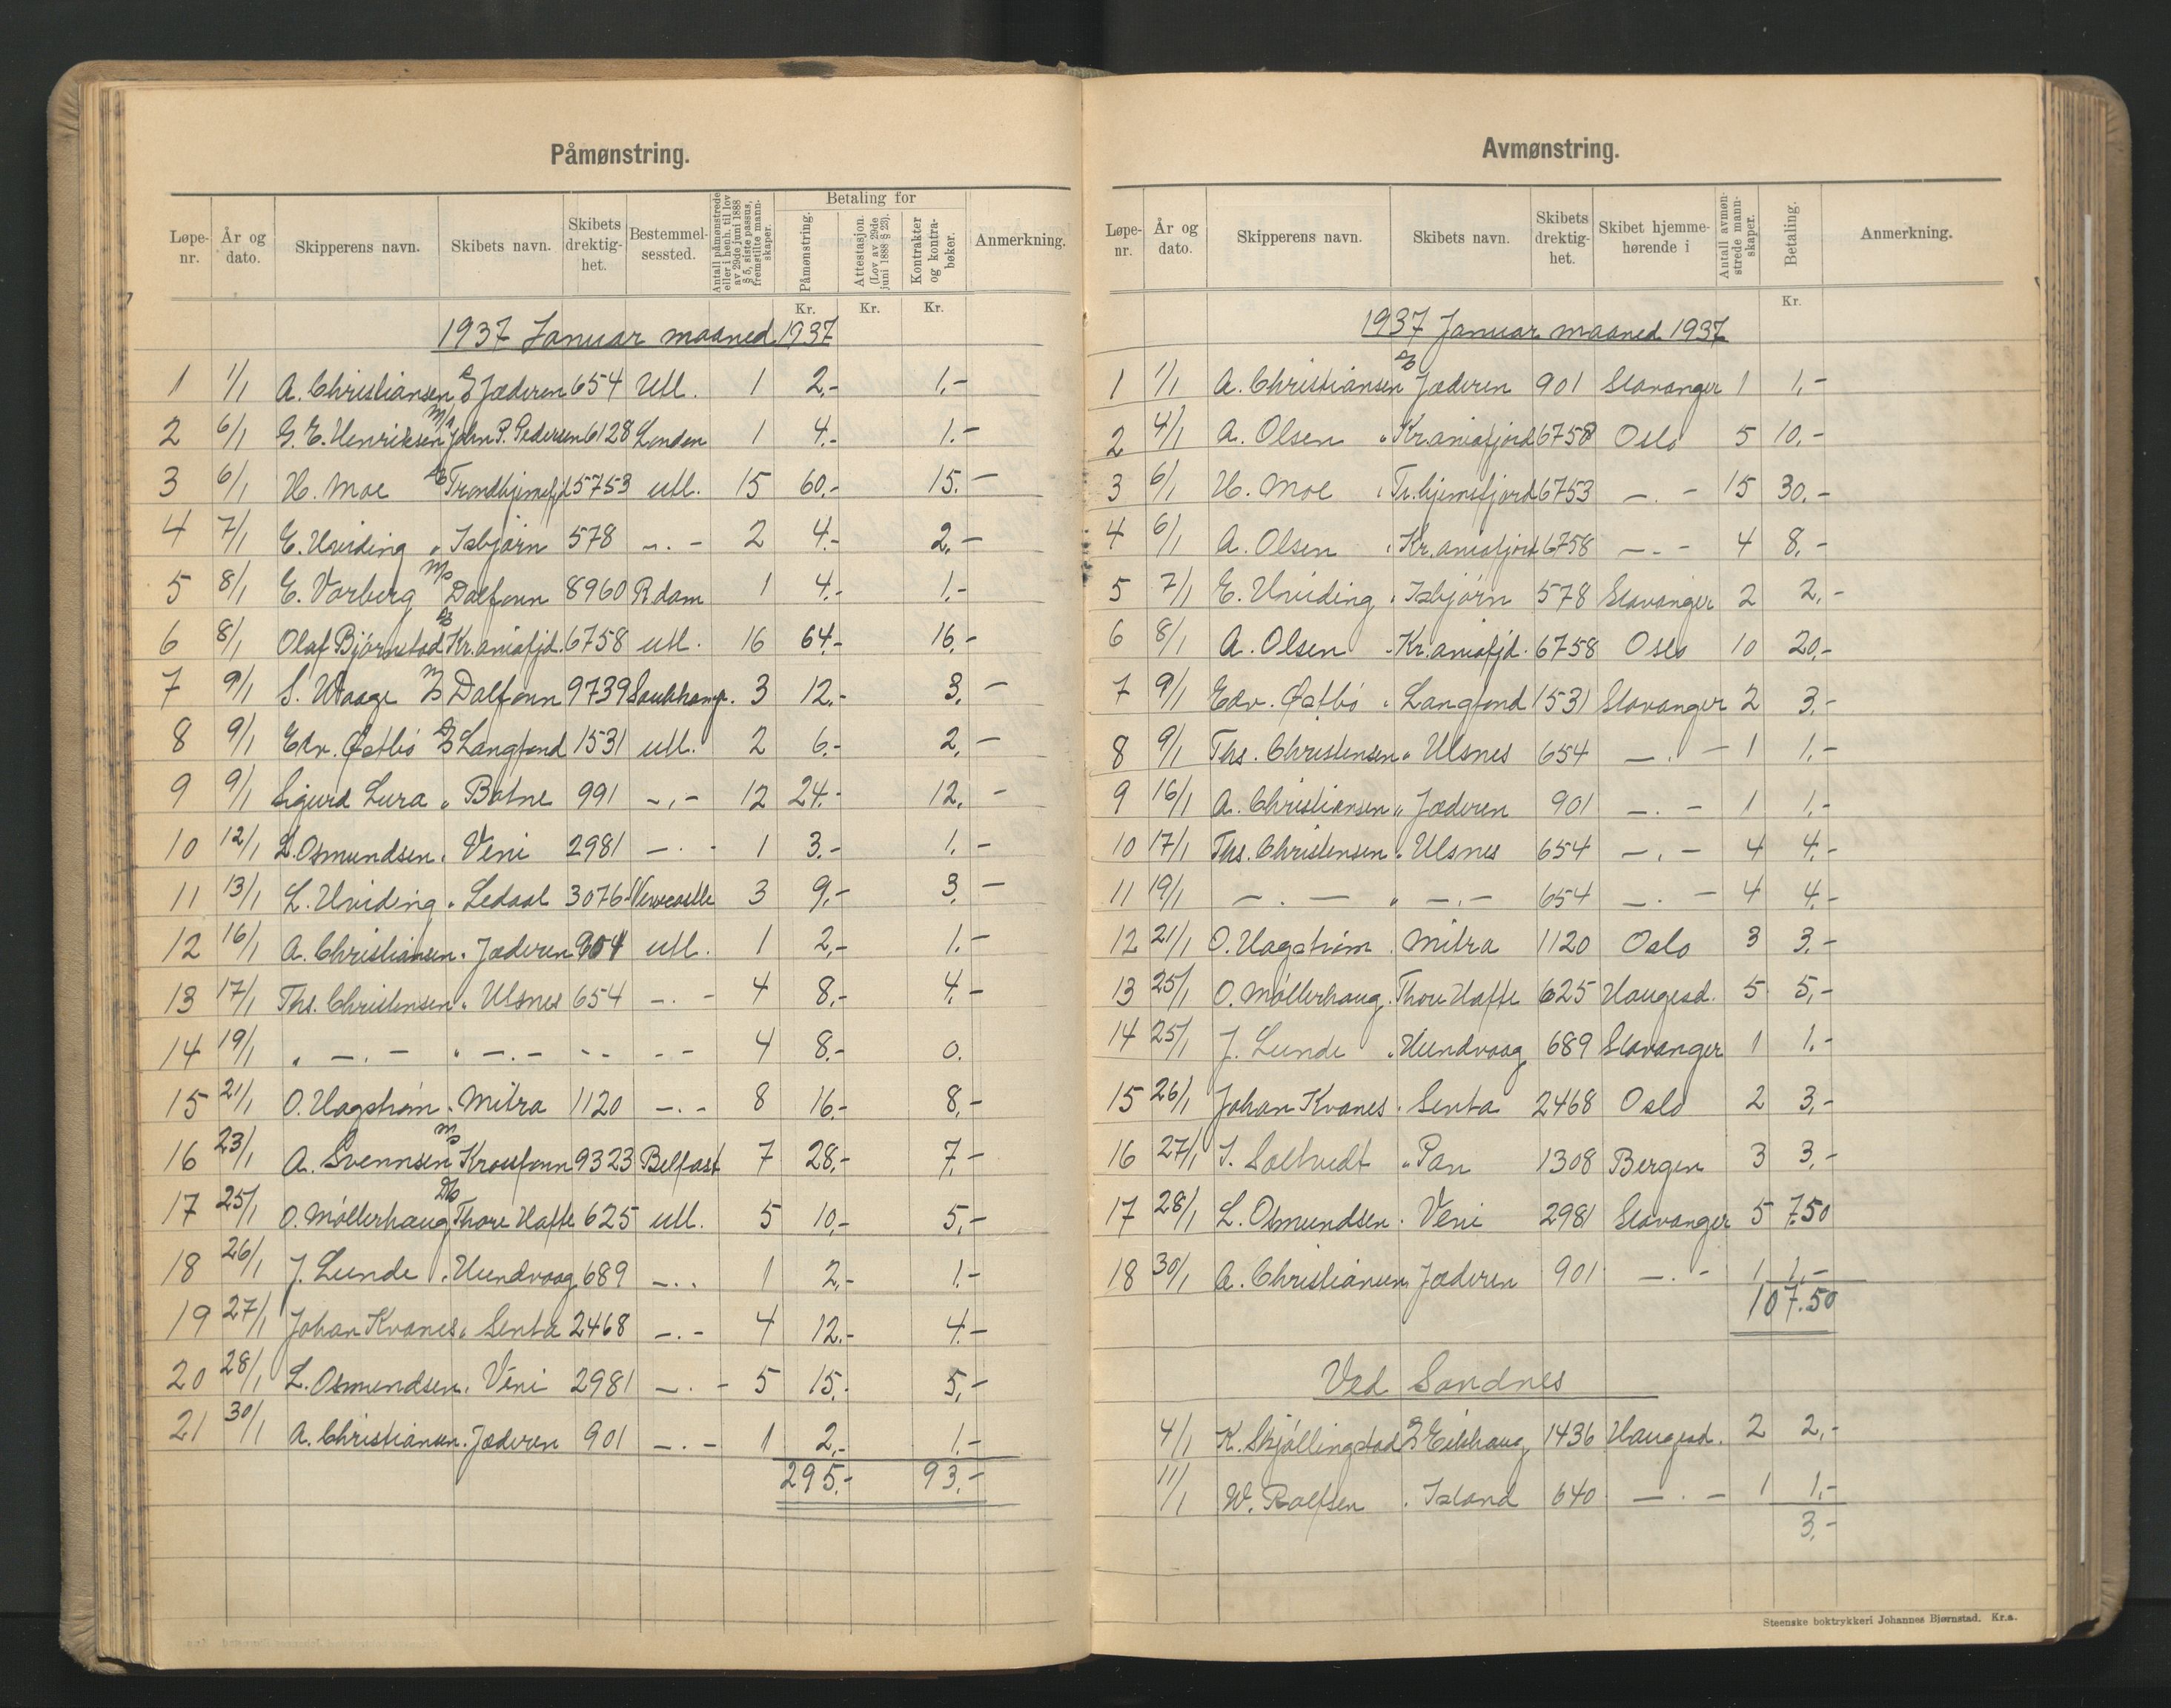 Påmønstring.
Løpe-nr. År og dato. Skipperens navn. Skibets navn. Skibets drektig-het. Bestemmel-sessted. Antall påmønstrede eller i henh. til lov av 29de juni 1888 § 5, siste passus, fremstilte mann-skaper. Betaling for Påmønstring. Attestasjon (Lov av 29de juni 1888 § 23). Kontrakter og kontra-bøker. Anmerkning.
Kr. Kr. Kr.
1937 Januar maaned 1937
1 1/1 A. Christiansen Jæderen 654 Utl. 1 2,- 1,-
2 6/1 G. E. Henriksen M/s John P. Pedersen 6128 London 1 4,- 1,-
3 6/1 H. Moe Trondhjemsfjd 5753 utl. 15 60,- 15,-
4 7/1 E. Hviding " Isbjørn 578 -.- 2 4,- 2,-
5 8/1 E. Vorberg M/s Dalfonn 8960 R.dam 1 4,- 1,-
6 8/1 Olaf Bjørnstad Kr.aniafjd. 6758 utl. 16 64,- 16,-
7 9/1 S. Waage Dalfonn 9739 Southamp. 3 12,- 3,-
8 9/1 Edv. Østbø Langfond 1531 utl. 2 6,- 2,-
9 9/1 Sigurd Lura " Botne 991 -.- 12 24,- 12,-
10 12/1 L. Osmundsen " Veni 2981 -.- 1 3,- 1,-
11 13/1 L. Hviding " Ledaal 3076 Newcastle 3 9,- 3,-
12 16/1 A. Christiansen " Jæderen 904 utl. 1 2,- 1,-
13 17/1 Ths. Christensen " Ulsnes 654 -.- 4 8,- 4,-
14 19/1 " -.- " -.- -- -- 4 8,- 0.
15 21/1 O. Hagstrøm " Mitra 1120 -.- 8 16,- 8,-
16 23/1 A. Svennsen M/s Krossfonn 9323 Belfast 7 28,- 7,-
17 25/1 O. Møllerhaug D/s Thore Hafte 625 utl. 5 10,- 5,-
18 26/1 J. Lunde " Hundvaag 689 -.. 1 2,- 1,-
19 27/1 Johan Kvanes " Senta 2468 -.- 4 12,- 4,-
20 28/1 L. Osmundsen " Veni 2981 -.- 5 15,- 5,-
21 30/1 A. Christiansen " Jæderen 901 -.- 1 2,- 1,-
295,- 93,-
Avmønstring.
Løpe-nr. År og dato. Skipperens navn. Skibets navn. Skibets drektig-het. Skibet hjemme-hørende i Antall avmøn-strede mann-skaper. Betaling. Anmerkning.
Kr.
1937 Januar maaned 1937
1 1/1 A. Christiansen Jæderen 901 Stavanger 1 1,-
2 4/1 A. Olsen " Kr.aniafjord 6758 Oslo 5 10,-
3 6/1 H. Moe " Tr.hjemsfjord 6753 -.- 15 30,-
4 6/1 A. Olsen " Kr.aniafjord 6758 -.- 4 8,-
5 7/1 E. Hviding " Isbjørn 578 Stavanger 2 2,-
6 8/1 A. Olsen " Kr.aniafjd. 6758 Oslo 10 20,-
7 9/1 Edv. Østbø " Langfond 1531 Stavanger 2 3,-
8 9/1 Ths. Christensen " Ulsnes 654 -.- 1 1,-
9 16/1 A. Christiansen " Jæderen 901 -.- 1 1,-
10 17/1 Ths. Christensen " Ulsnes 654 -.- 4 4,-
11 19/1 -.- " -.- 654 -.- 4 4,-
12 21/1 O. Hagstrøm " Mitra 1120 Oslo 3 3,-
13 25/1 O. Møllerhaug " Thore Hafte 625 Haugesd. 5 5,-
14 25/1 J. Lunde " Hundvaag 689 Stavanger 1 1,-
15 26/1 Johan Kvanes " Senta 2468 Oslo 2 3,-
16 27/1 S. Soltvedt " Pan 1308 Bergen 3 3,-
17 28/1 L. Osmundsen " Veni 2981 Stavanger 5 7.50
18 30/1 A. Christiansen " Jæderen 901 -.- 1 1,-
107.50
Ved Sandnes
4/1 K. Skjøllingstad Eikhaug 1436 Haugesd. 2 2,-
11/1 W. Rolfsen " Island 640 -.- 1 1,-
3,-
Steenske boktrykkeri Johannes Bjørnstad. Kr.a.